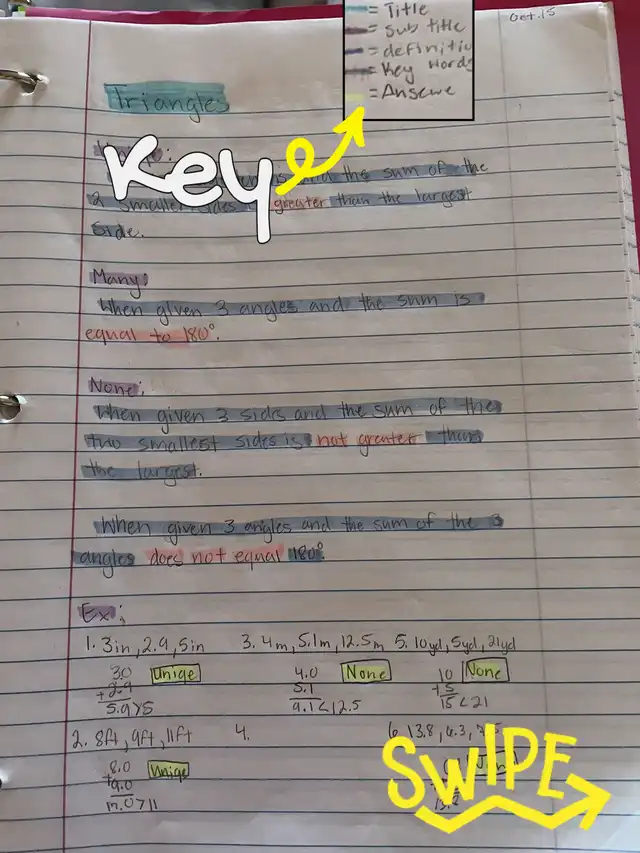 Oct. 15
= Title
= sub title
= definitio
= Key words
= Answe
Triangles
Key
and the sum of the
2 smaller sides greater than the largest
Side.
Many:
When given 3 angles and the sum is
equal to 180°.
None:
When given 3 sides and the sum of the
two smallest sides is not greater than
the largest.
When given 3 angles and the sum of the 3
angles does not equal 180°.
Ex:
1. 3in, 2.9, 5in
3.0
+2.9
5.9>5
Uniqe
3. 4m, 5.1m, 12.5m
4.0
5.1
9.1<12.5
None
5. 10yd, 5yd, 21yd
10
+5
15<21
None
2. 8ft, 9ft, 11ft
8.0
+9.0
17.0>11
Uniqe
4.
6. 13.8, 6.3,
SWIPE